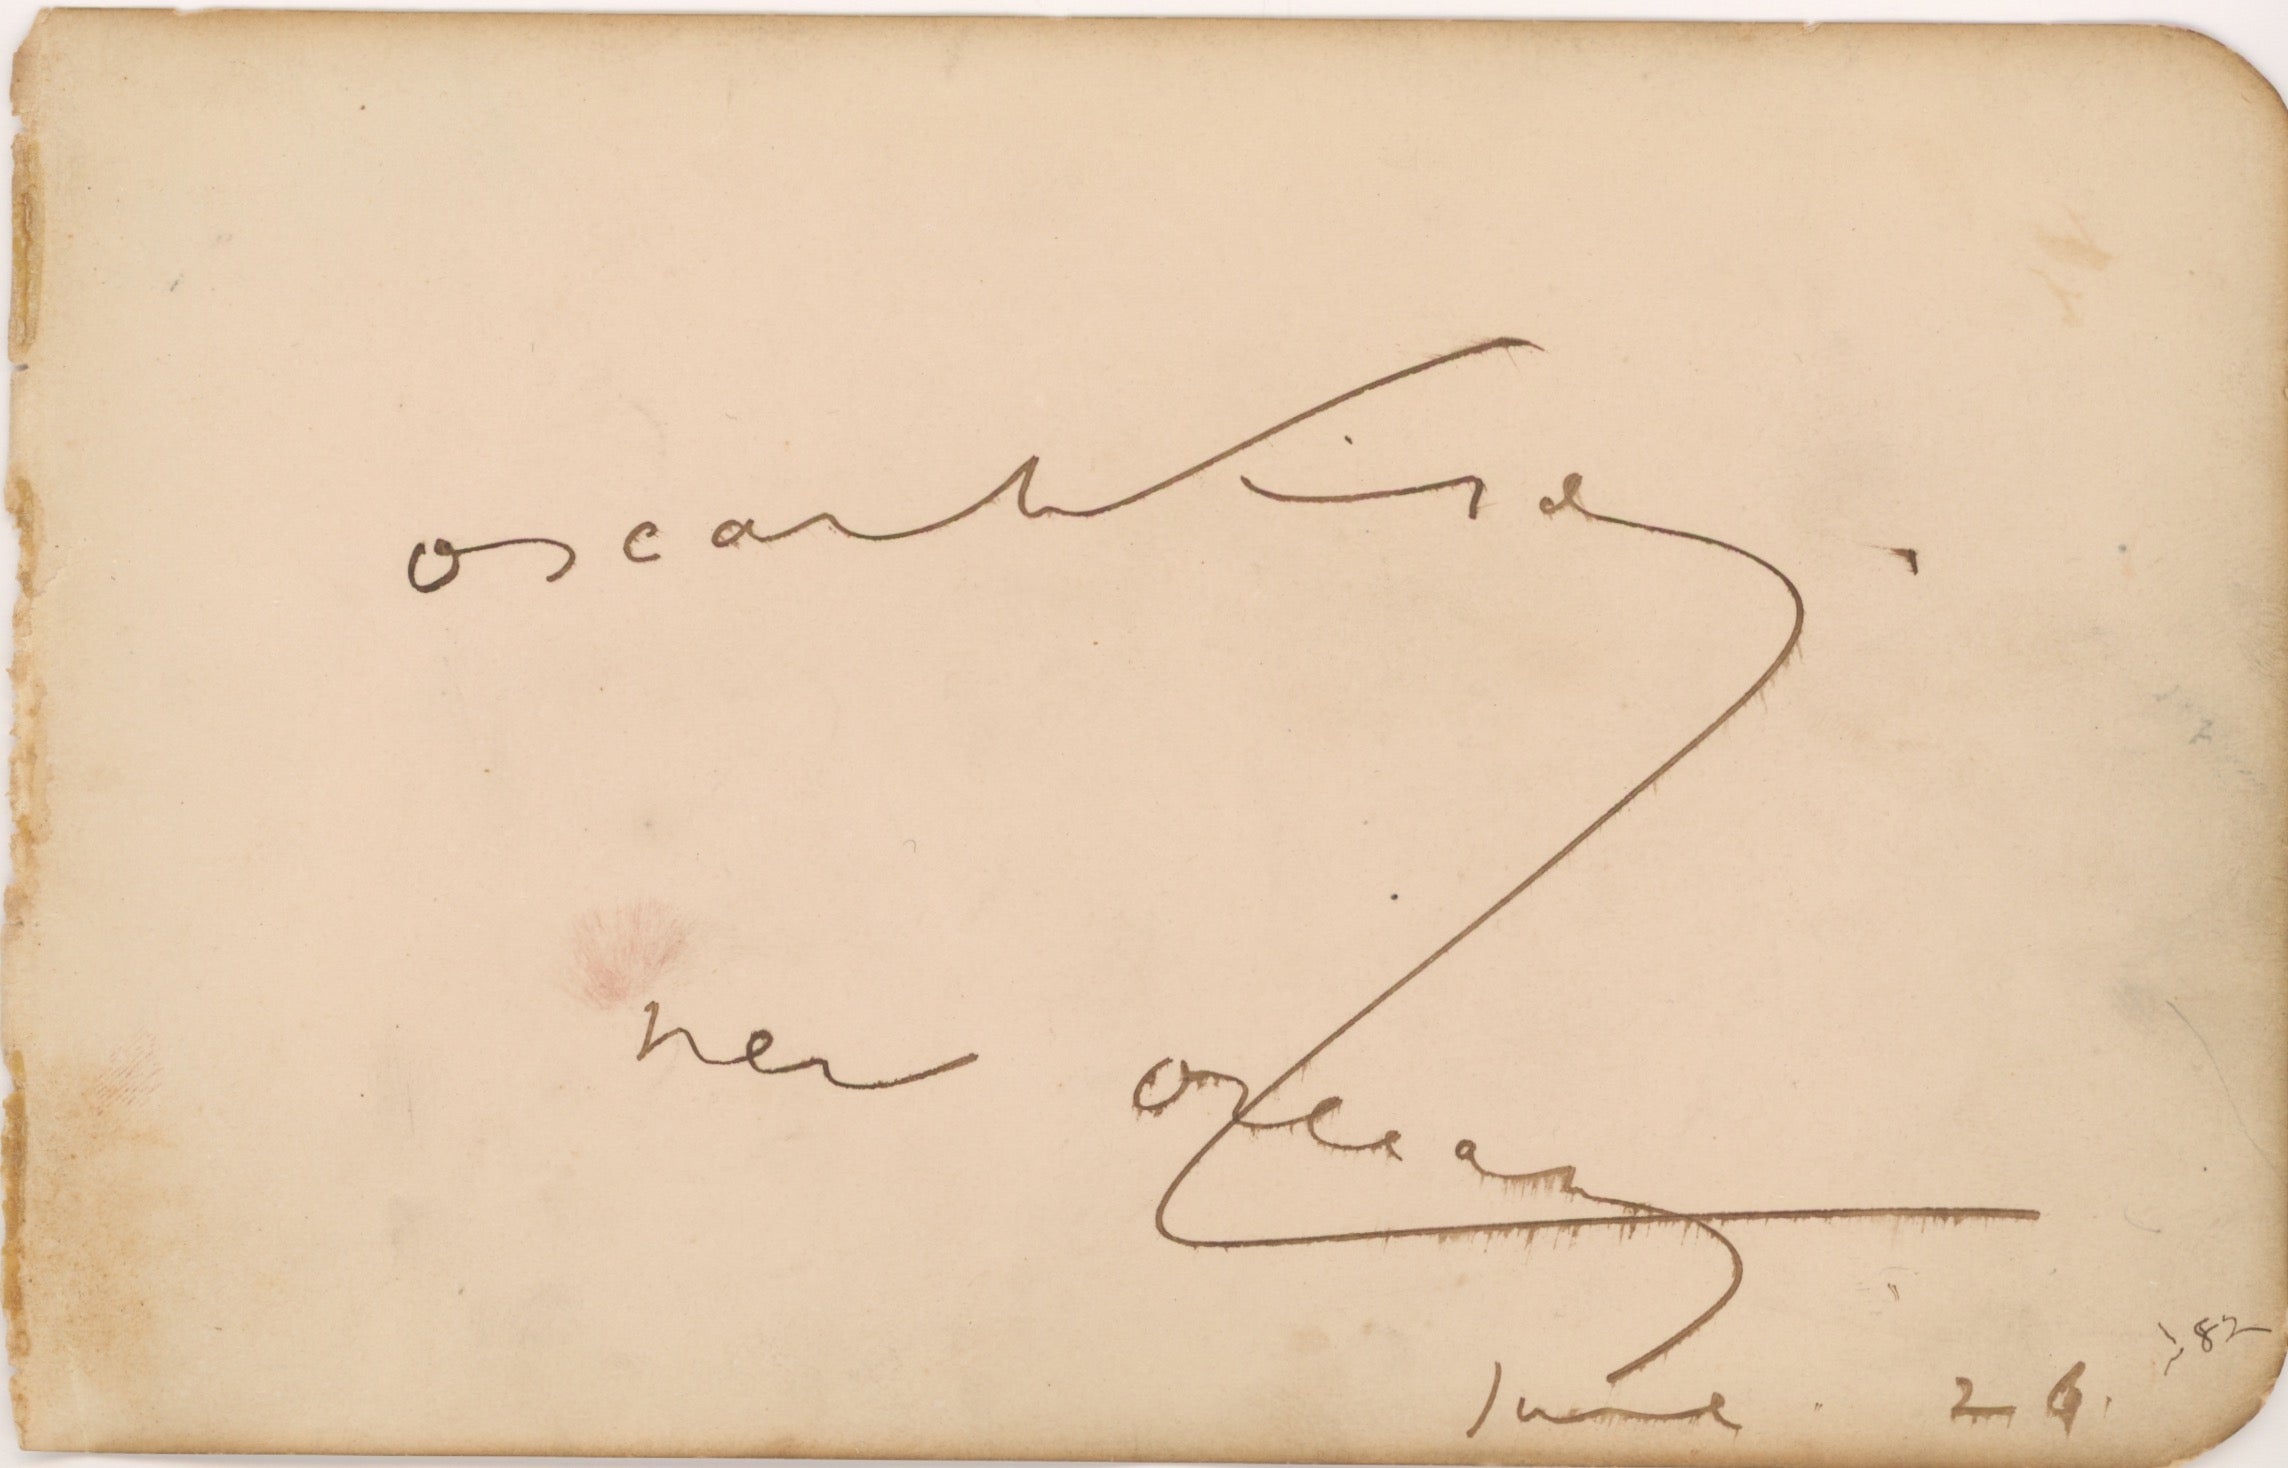 Oscar Wilde
New Orleans
June . 26. '82